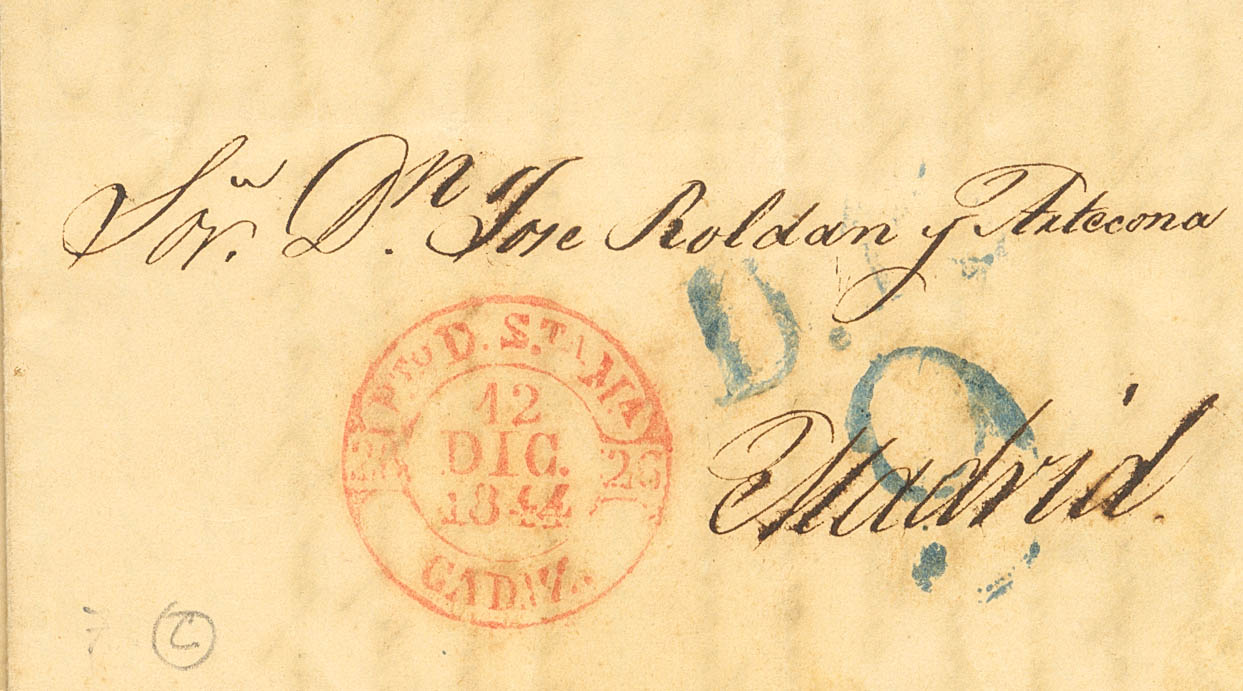 Sor. Dn. Jose Roldan y Artecona
D.
PTO D. S.TA MA
12
DIC.
1844
26
CADIZ.
Madrid.
C